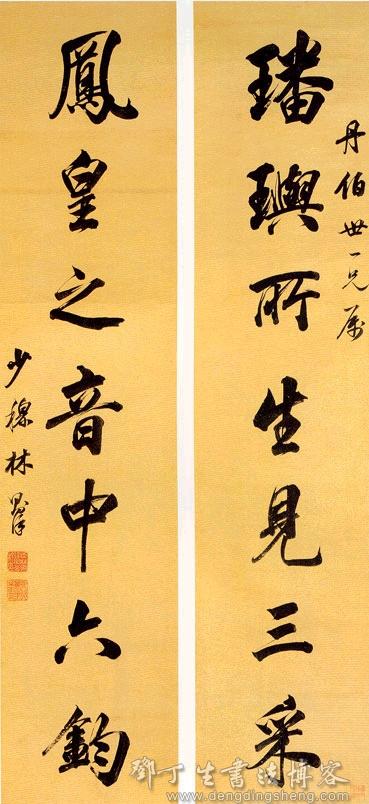 丹伯世一兄屬
璠璵所生見三采
鳳皇之音中六鈞
少穆林則徐
鄧丁生書法博客
www.dengdingsheng.com